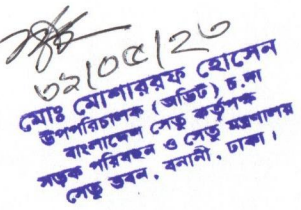 ৩২/০৫/২৩
মোঃ মোশাররফ হোসেন
উপপরিচালক (অডিট) চ.দা
বাংলাদেশ সেতু কর্তৃপক্ষ
সড়ক পরিবহন ও সেতু মন্ত্রণালয়
সেতু ভবন, বনানী, ঢাকা।